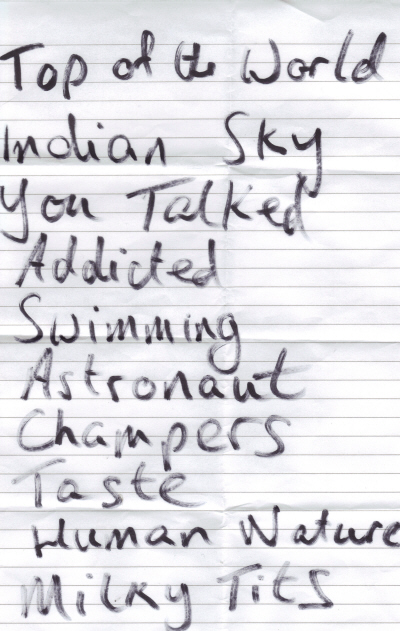 Top of the World
Indian Sky
You Talked
Addicted
Swimming
Astronaut
Champers
Taste
Human Nature
Milky Tits